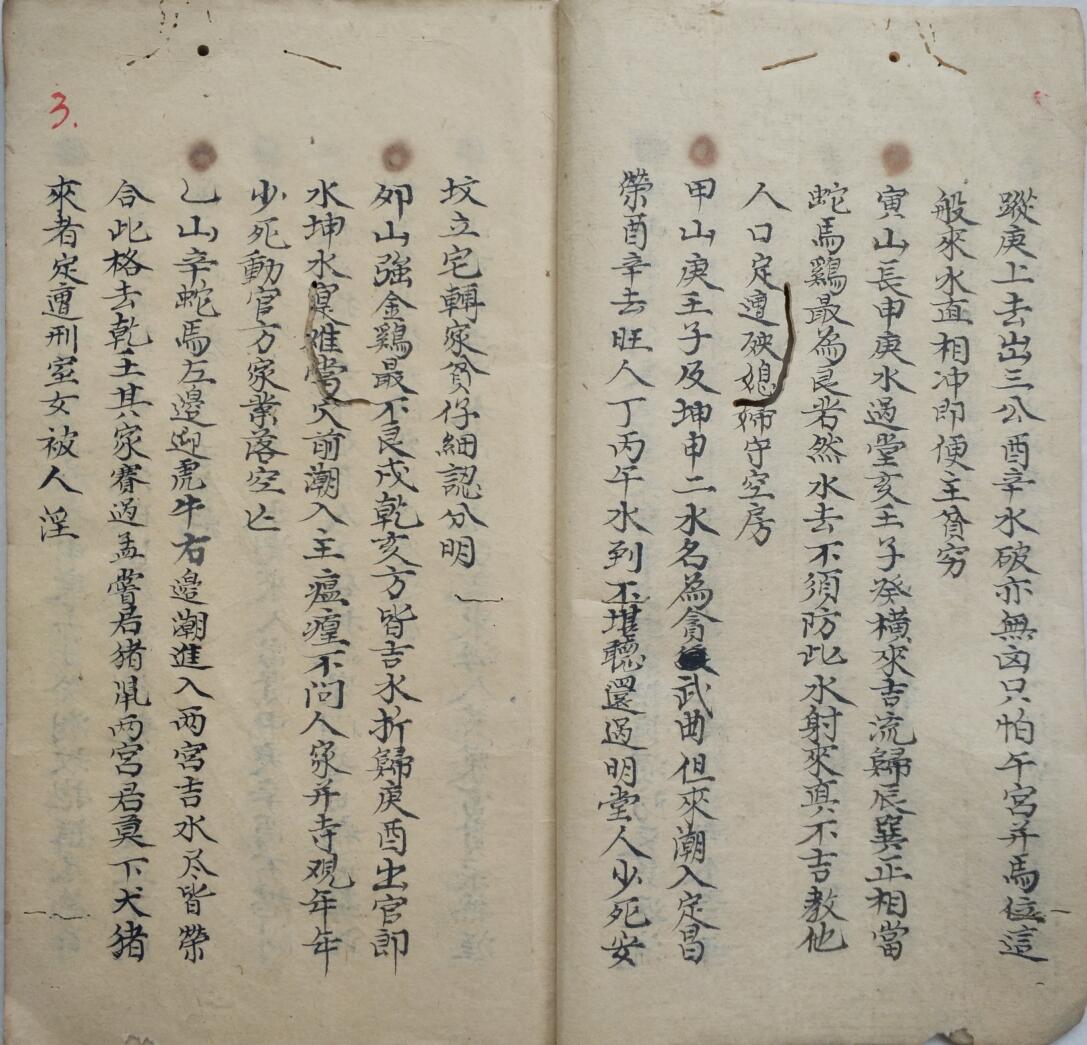 蹤庚上去出三公酉辛水破亦無凶只怕午宮并馬位這
般來水直相冲即便主貧穷
寅山長申庚水過堂亥壬子癸橫來吉流歸辰巽正相當
蛇馬鷄最為良若然水去不須防此水射來真不吉教他
人口定遭殃媳婦守空房
甲山庚壬子及坤申二水名為貪武曲但來潮入定昌
榮酉辛去旺人丁丙午水到不堪聽還過明堂人少死安
坟立宅轉家貧仔細認分明
卯山強金鷄最不良戌乾亥方皆吉水折歸庚酉出官郎
水坤水難當穴前潮入主瘟𤶊不问人家并寺观年年
少死動官方家業落空亡
乙山辛蛇馬左邊迎虎牛右邊潮進入两宮吉水尽皆榮
合此格去乾壬其家賽過孟嘗君猪鼠两宮君莫下犬猪
來者定遭刑室女被人淫
3.